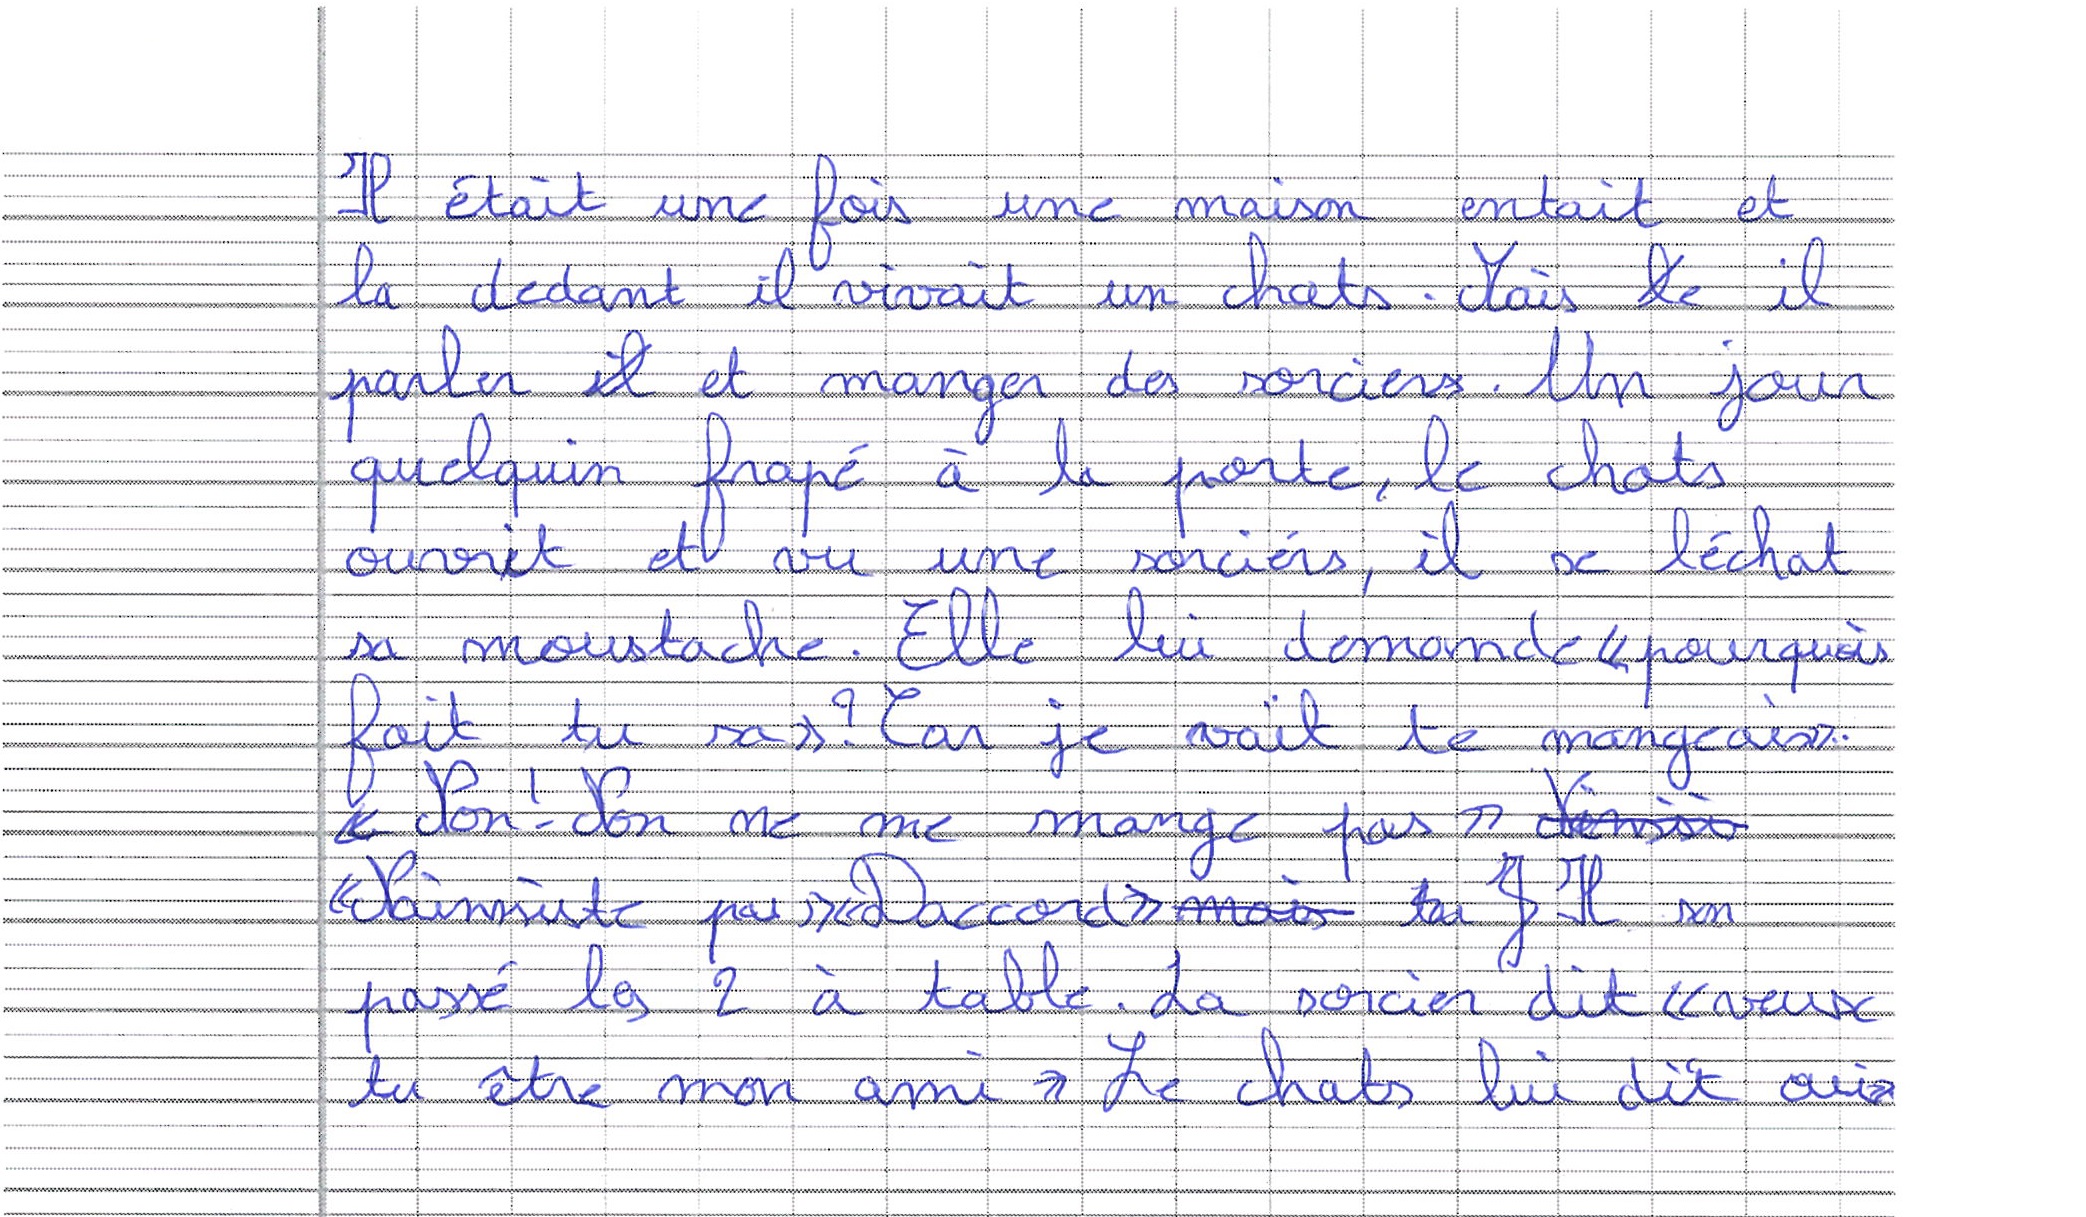 Il était une fois une maison entait et
la dedant il vivait un chats. Mais il
parler et manger des sorciers. Un jour
quelquin frapé à la porte, le chats
ouvrit et vu une sorciérs, il se léchat
sa moustache. Elle lui demande « pourquois
fait tu sa » ? Car je vait te mangeais ».
« Non ! Non ne me mange pas »
« Sainsiste pas » « Daccord » Il son
passé les 2 à table. La sorcier dit « veux
tu être mon ami » Le chats lui dit oui »